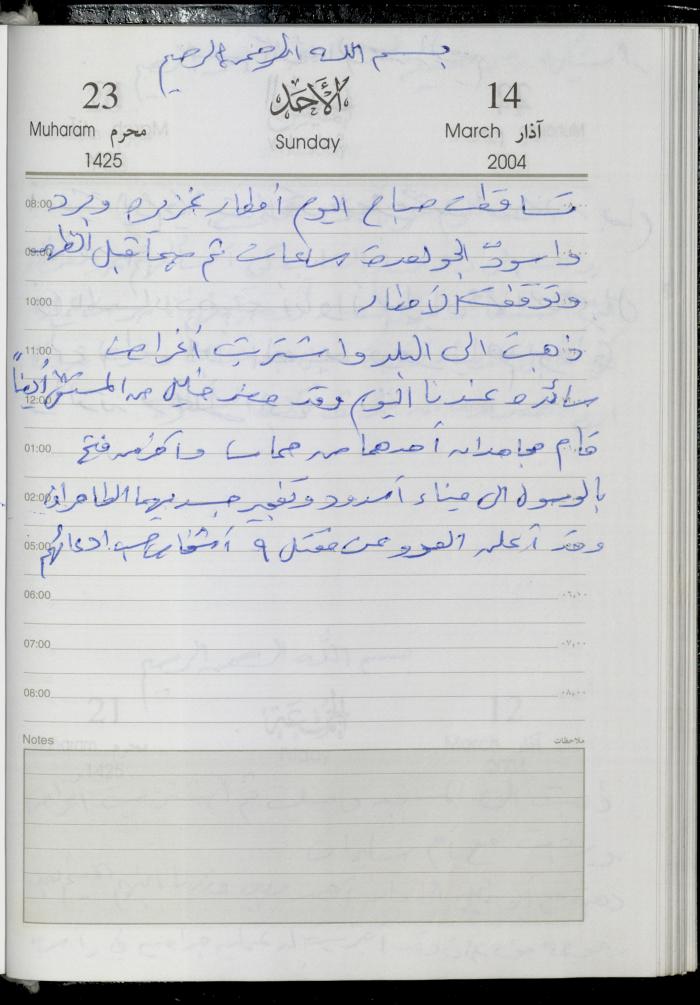 بسم الله الرحمن الرحيم
23 الأحد 14
Muharam محرم Sunday March آذار
1425 2004
08:00 تساقطت صباح اليوم أمطار غزيرة وبرد
09:00 واسودّ الجو لعدة ساعات ثم صحا قبل الظهر
10:00 وتوقفت الأمطار
11:00 ذهبت الى البلد واشتريت أغراض
12:00 سائدة عندنا اليوم وقد حضر خليل من المستشفى أيضاً
01:00 قام مجاهدان أحدهما من حماس وآخر من فتح
02:00 بالوصول الى ميناء أسدود وتفجير جسديهما الطاهران
05:00 وقد أعلن العدو عن مقتل ٩ أشخاص حسب ادعائهم
06:00 ٠٦,٠٠
07:00 ٠٧,٠٠
08:00 ٠٨,٠٠
Notes ملاحظات